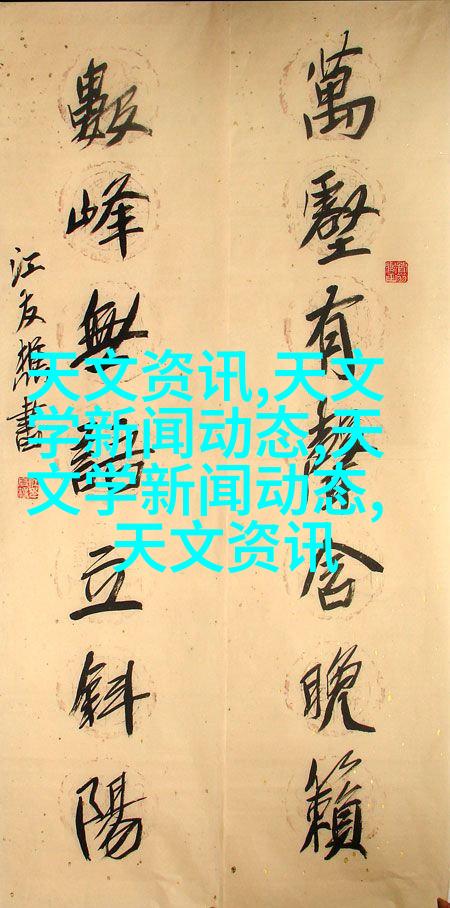 萬壑有聲含晚籟
數峰無語立斜陽
江友樵書
天文资讯,天文
学新闻动态,天
文学新闻动态,
天文资讯